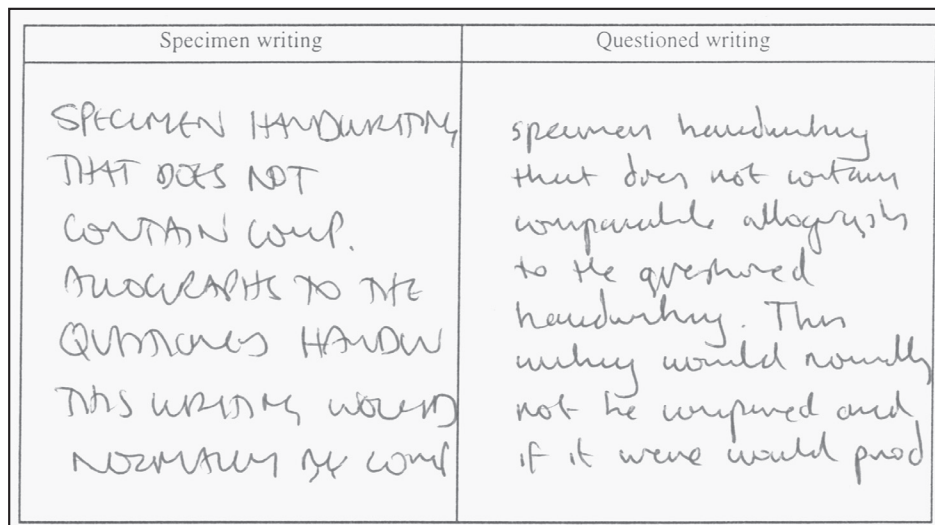 Specimen writing
SPECIMEN HANDWRITING
THAT DOES NOT
CONTAIN COMP.
ALLOGRAPHS TO THE
QUESTIONED HANDW
THIS WRITING WOULD
NORMALLY BE COMP
Questioned writing
specimen handwriting
that does not contain
comparable allographs
to the questioned
handwriting. This
writing would normally
not be compared and
if it were would prod